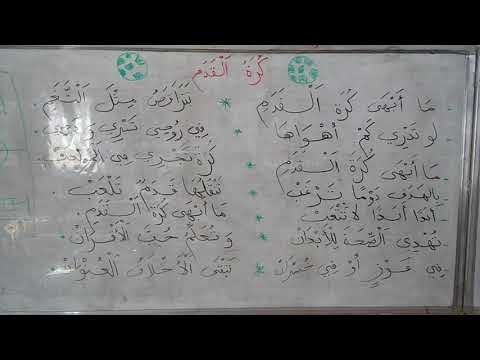 كُرَةُ الْقَدَمِ
- مَا أَبْهَى كُرَةَ الْقَدَمِ * تَتَرَاقَصُ مِثْلَ النَّغَمِ.
- لو تَدْرِي كَمْ أَهْوَاهَا * فِي رُوحِي تَسْرِي وَ دَمِي.
- مَا أَبْهَى كُرَةَ الْقَدَمِ * كُرَةٌ تَجْرِي فِي الْمَلْعَبْ.
- بِالْهَدَفِ دَوْمًا نَرْغَبْ * تَنْقُلُهَا قَدَمٌ تَلْعَبْ.
- أَبَدًا أَبَدًا لَا نَتْعَبْ * مَا أَبْهَى كُرَةَ الْقَدَمِ.
- تُهْدِي الصِّحَّةَ لِلْأَبْدَانْ * وَ تُعَلِّمُ حُبَّ الْأَقْرَانْ.
- فِي فَوْزٍ أَوْ فِي خُسْرَانْ * تَبْقَى الْأَخْلَاقُ الْعُنْوَانْ.